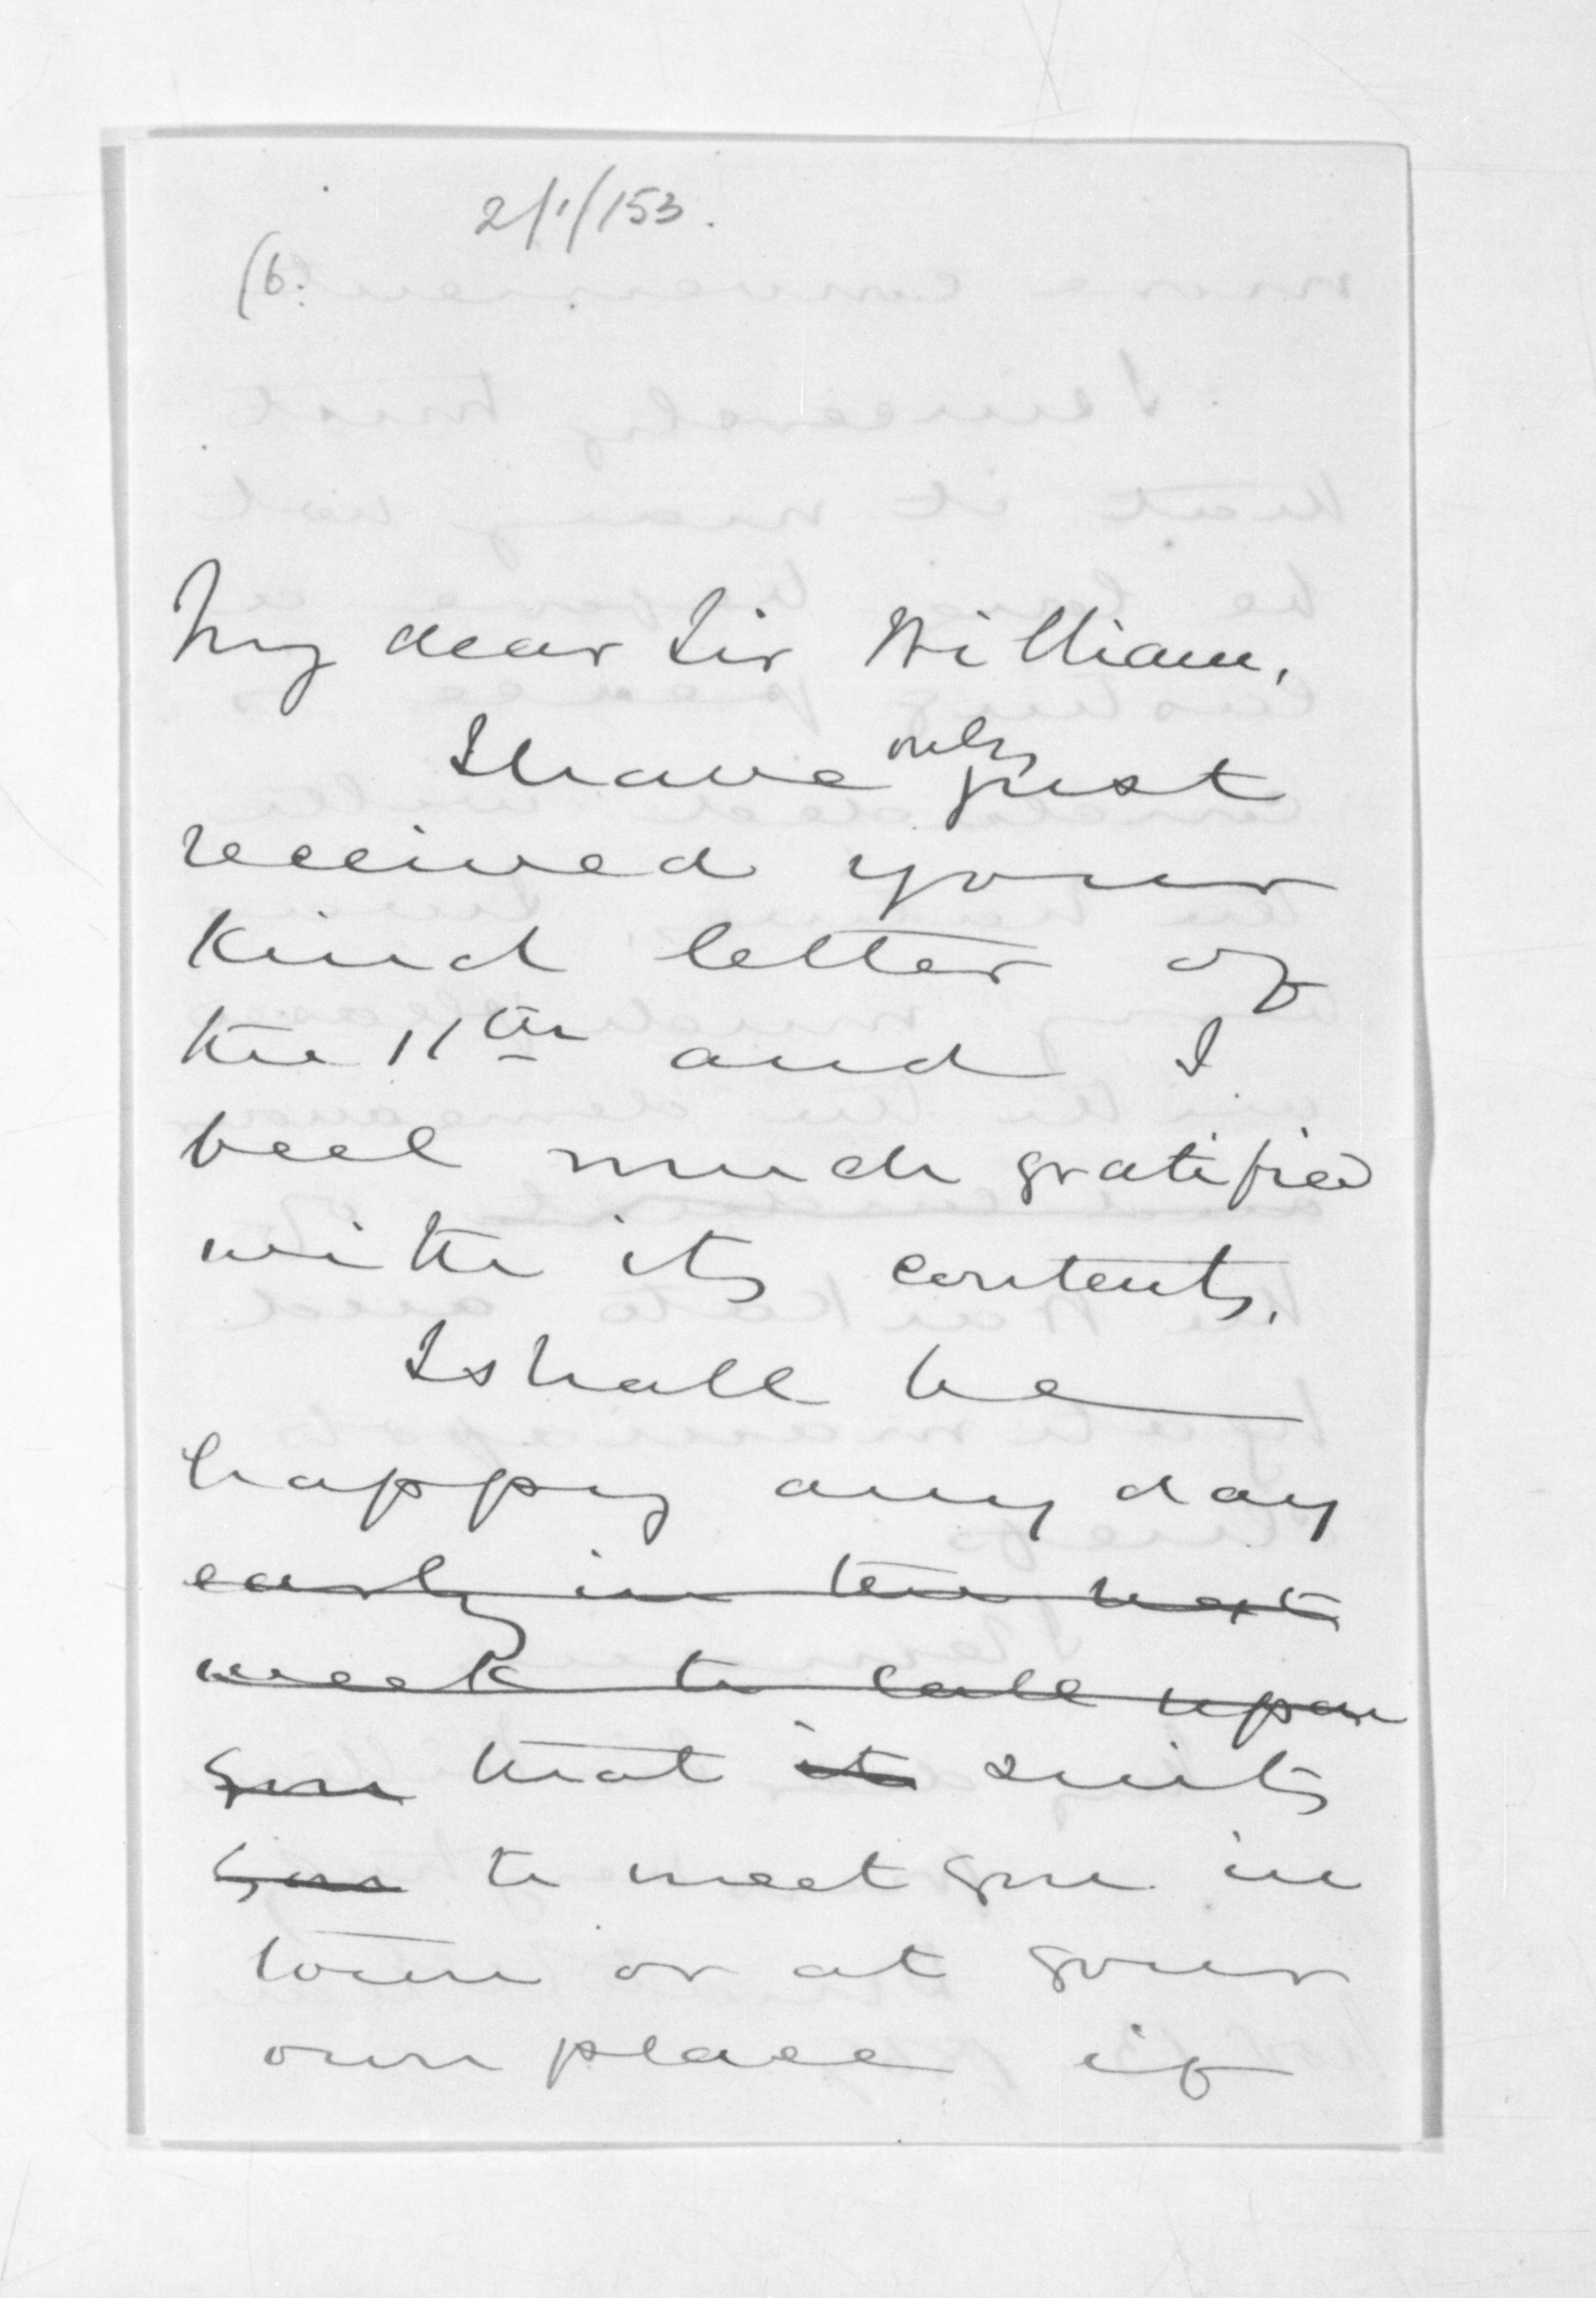 2/1/153.
(6.
My dear Sir William,
I have only just
received your
kind letter of
the 11th and I
feel much gratified
with its contents.
I shall be
happy any day
early in the next
week to call upon
you that it suits
you to meet you in
town or at your
own place if